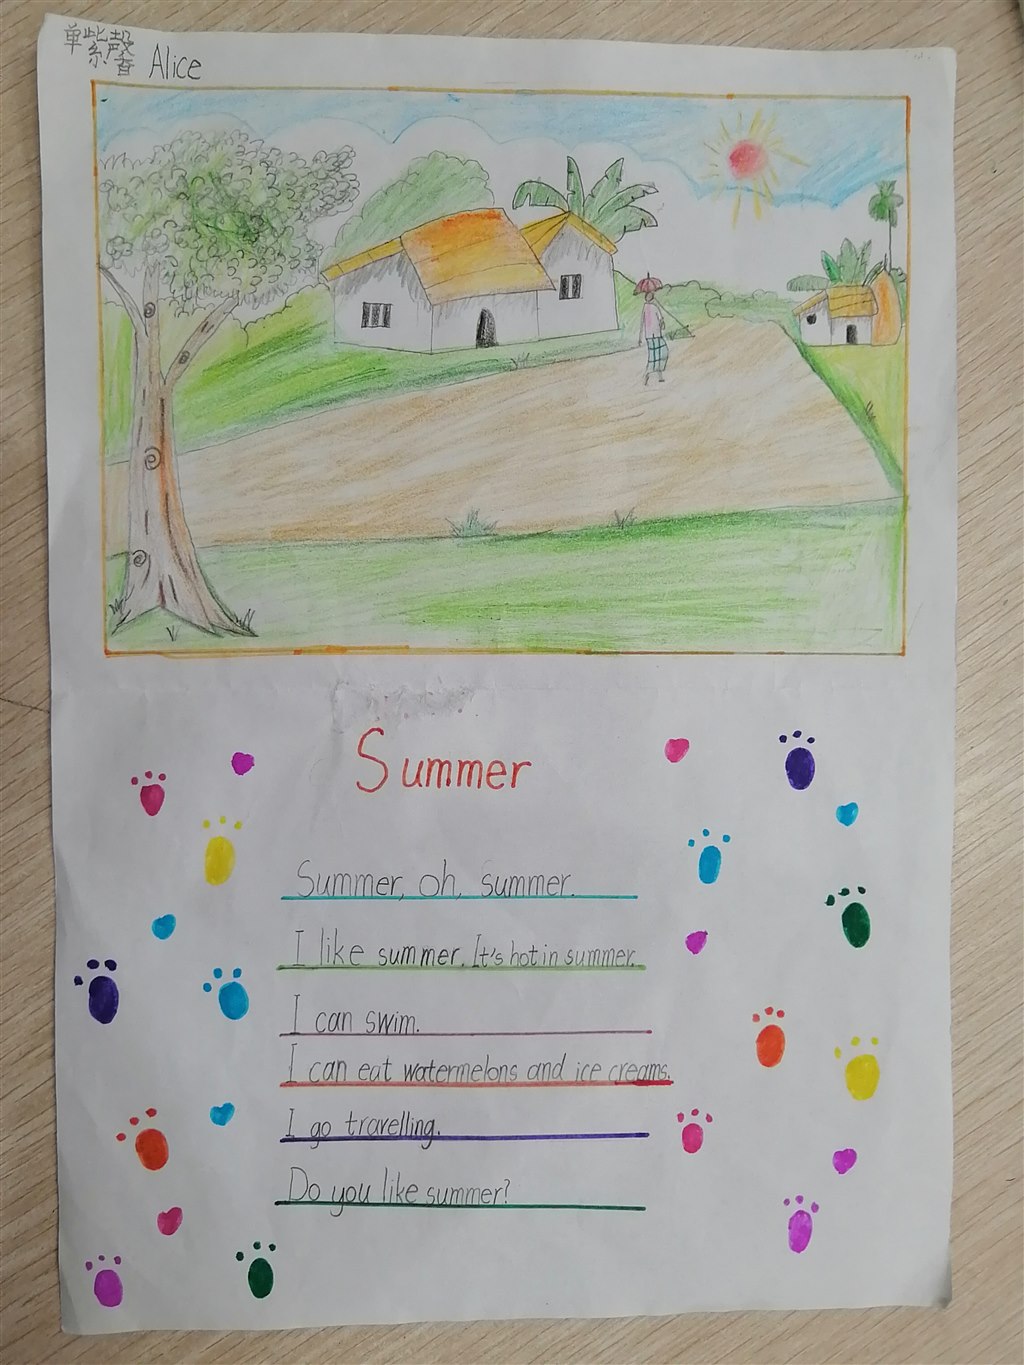 单紫馨 Alice
Summer
Summer, oh, summer.
I like summer. It's hot in summer.
I can swim.
I can eat watermelons and ice creams.
I go travelling.
Do you like summer?